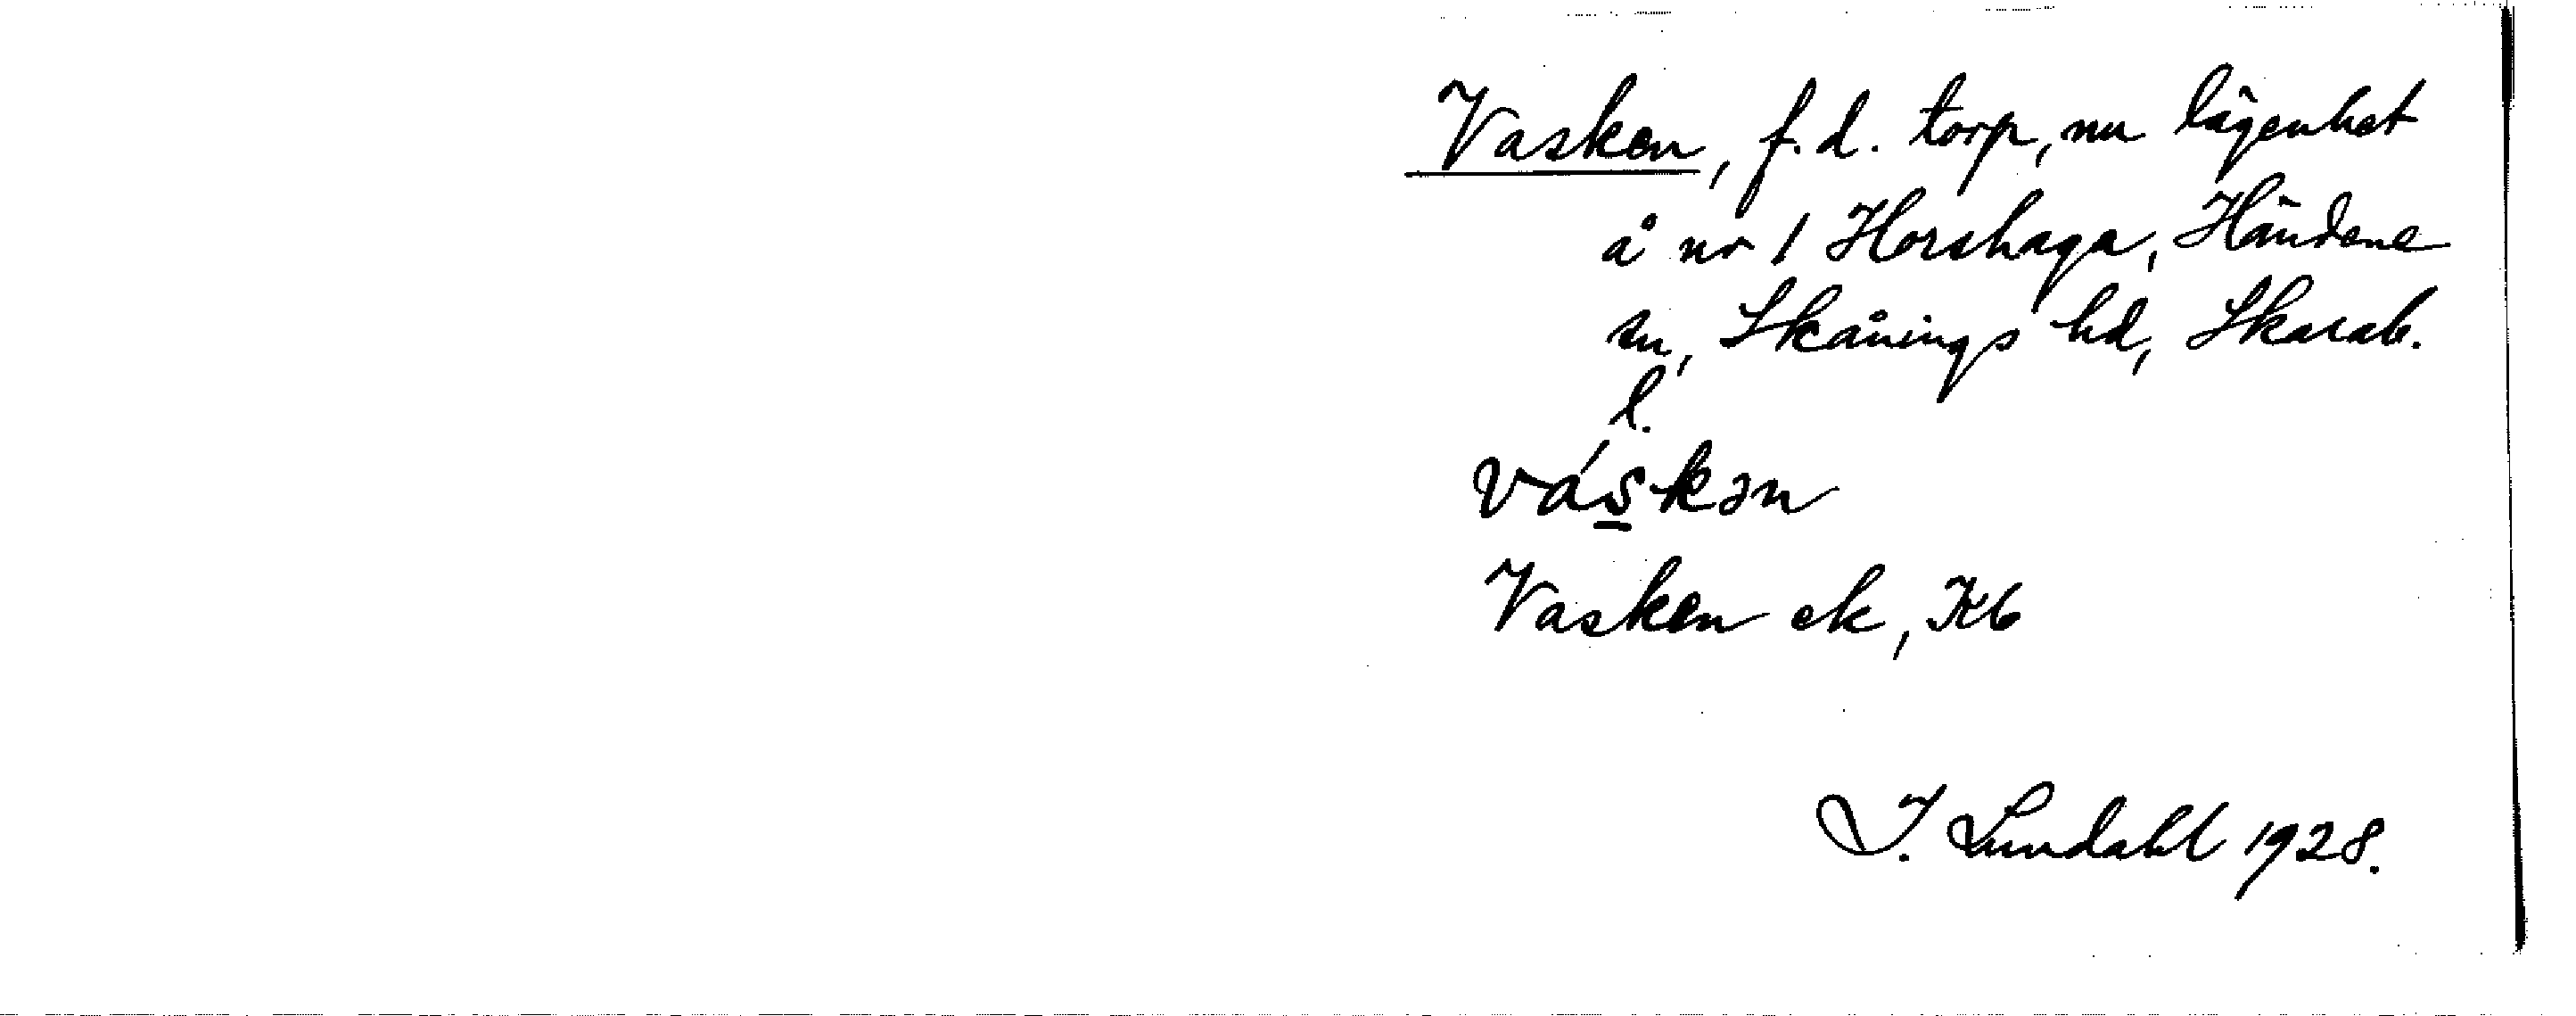 Vasken, f.d. torp, nu lägenhet
å nr 1 Horshaga, Händene
sn, Skånings hd, Skarab.
l.
vás̲kən
Vasken ek, Kb
I. Lundahl 1928.